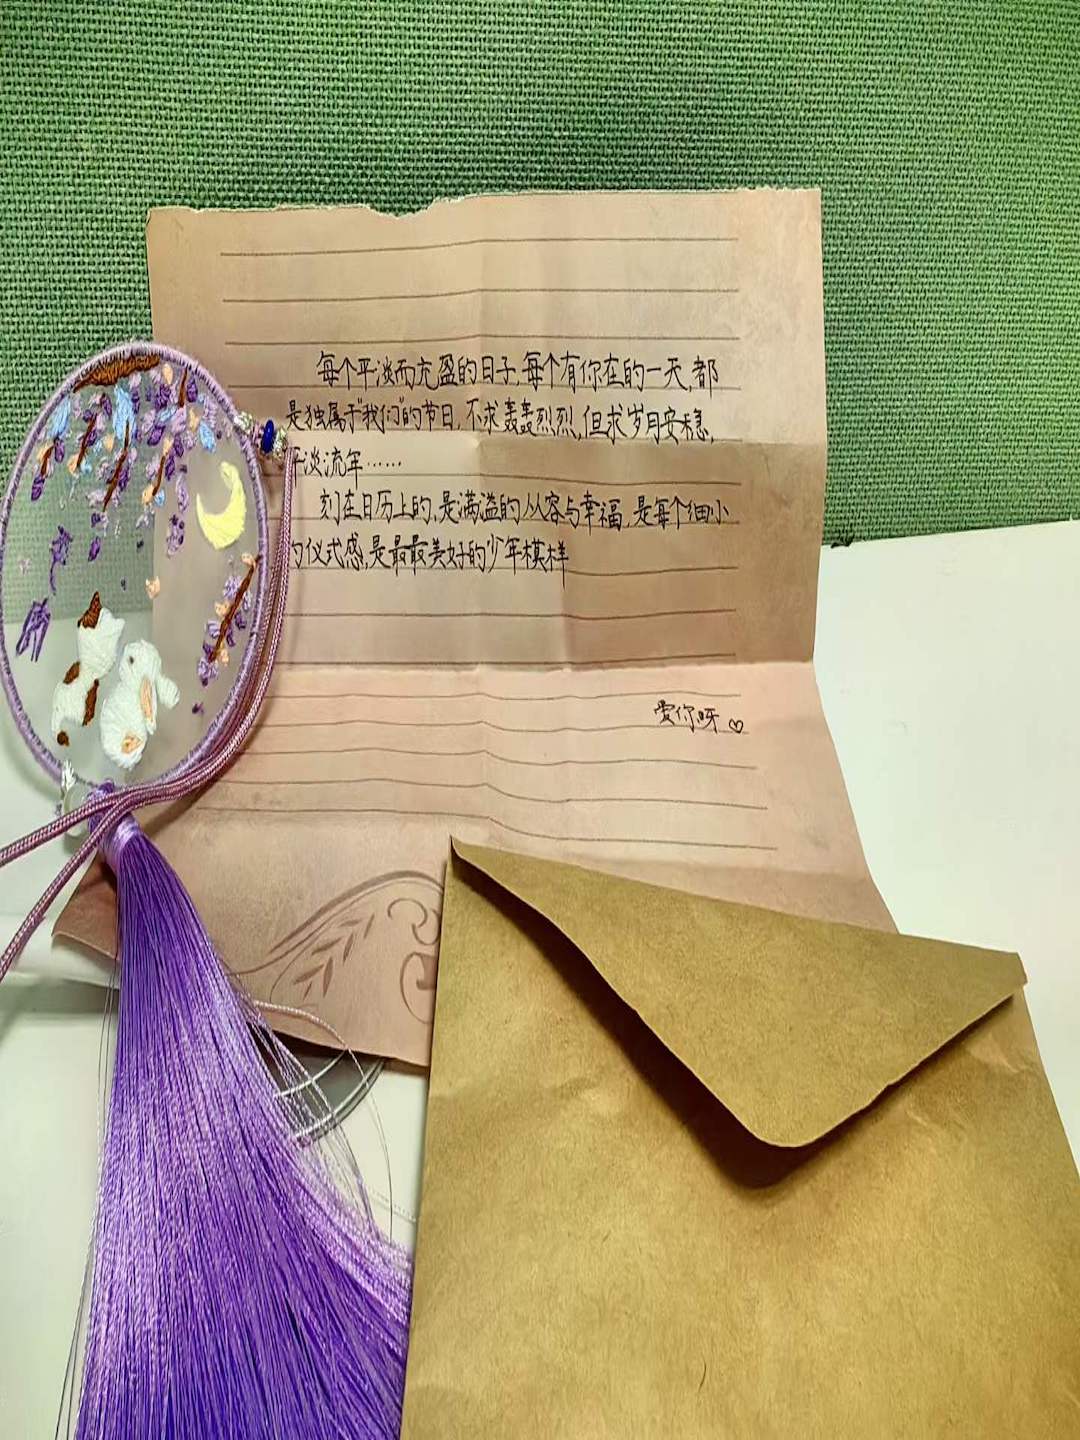 每个平淡而充盈的日子,每个有你在的一天,都
是独属于"我们"的节日,不求轰轰烈烈,但求岁月安稳,
平淡流年……
刻在日历上的,是满溢的从容与幸福,是每个细小
的仪式感,是最最美好的少年模样
爱你呀♡